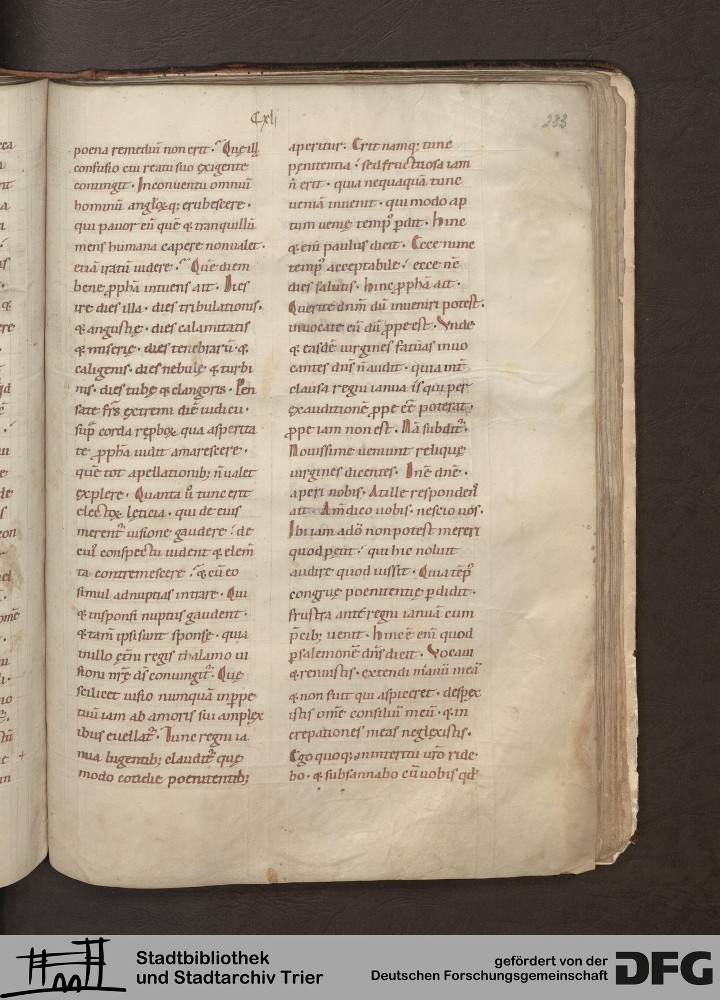 Cxli
283
poena remediū non erit. Que ill
confusio cui reatu suo exigente
contingit. In conuentu omniū
hominū anglꝝq; erubescere.
qui pauor eū quē & tranquillū
mens humana capere non ualet.
etiā iratū uidere. Quē diem
bene ꝓpha intuens ait. Dies
ire dies illa. dies tribulationis.
& angustię. dies calamitatis
& miserię. dies tenebrarū. &
caliginis. dies nebulę & turbi
nis. dies tubę & clangoris. Pen
sate frs extremi diē iudicii.
sup corda reꝓboꝝ qua asperita
te ꝓpha uidit amarescere.
quē tot apellationib; n̄ ualet
explere. Quanta ū tunc erit
electoꝝ leticia. qui de eius
merent᷑ uisione gaudere. de
cui᷒ conspectu uident & elem̄
ta contremescere. & cū eo
simul ad nuptias intrare. Qui
& in sponsi nuptiis gaudent.
& tam̄ ipsi sunt sponse. quia
in illo etni regis thalamo ui
sioni nr̄ę ds̄ coniungit᷑. Quę
scilicet uisio numquā in ꝑpe
tuū iam ab amoris sui amplex
ibus euellat᷑. Tunc regni ia
nua lugentib; claudit᷑ quę
modo cotidie poenitentib;
aperitur. Erit namq; tunc
penitentia. sed fructuosa iam
n̄ erit. quia nequaquā tunc
ueniā inuenit. qui modo ap
tum uenię temp᷒ ꝑdit. Hinc
& eni paulus dicit. Ecce nunc
temp᷒ acceptabile. ecce nc̄
dies salutis. Hinc ꝓpha ait.
Querite dnm dū inueniri potest.
inuocate eū dū ꝓpe est. Vnde
& easdē uirgines fatuas inuo
cantes dn̄s n̄ audit. quia
clausa regni ianua is qui per
exauditionē ꝓpe eē poterat.
ꝓpe iam non est. Nā subdit᷑.
Nouissime ueniunt reliquę
uirgines dicentes. Dn̄e dn̄e.
aperi nobis. At ille responden̄
ait. Am̄ dico uobis. nescio uos.
Ibi iam a dō non potest mereri
quod petit. qui hic noluit
audire quod iussit. Quia tēp᷒
congruę poenitentię ꝑdidit.
frustra ante regni ianuā cum
p̄cib; uenit. Hinc ē eni quod
p salemonē dn̄s dicit. Vocaui
& renuistis. extendi manū meā
& non fuit qui aspiceret. despex
istis om̄e consiliū meū. & in
crepationes meas neglexistis.
Ego quoq; in interitu uro ride
bo. & subsannabo cū uobis qd᷒
Stadtbibliothek
und Stadtarchiv Trier
gefördert von der
Deutschen Forschungsgemeinschaft
DFG